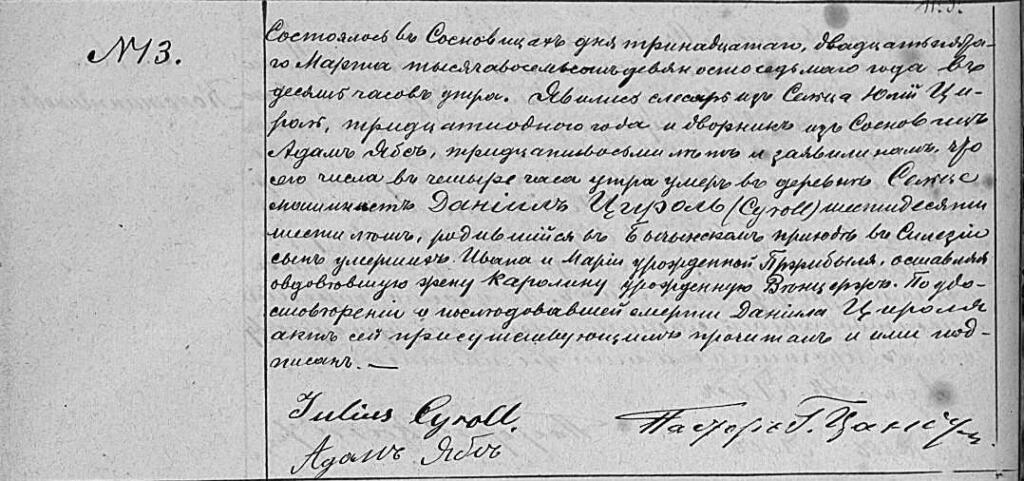 № 13.
Состоялось въ Сосновицахъ дня тринадцатаго, двадцать пята-
го Марта тысяча восемьсотъ девяносто седьмаго года въ
десять часовъ утра. Явились слесарь изъ Сельца Юлій Ци-
роль, тридцати одного года и дворникъ изъ Сосновицъ
Адамъ Ябсъ, тридцати восьми лѣтъ и заявили намъ, что
сего числа въ четыре часа утра умеръ въ деревнѣ Сельце
машинистъ Даніилъ Цироль (Cyroll) шестидесяти
шести лѣтъ, родившійся въ приютѣ въ Силезіи
сынъ умершихъ Ивана и Маріи урожденной Пржибыля, оставляя
овдовѣвшую жену Каролину урожденную По удо-
стовѣреніи о послѣдовавшей смерти Даніила Цироля
актъ сей присутствующимъ прочитанъ и ими под-
писанъ. —
Julius Cyroll.
Пасторъ Г.
Адамъ Ябсъ